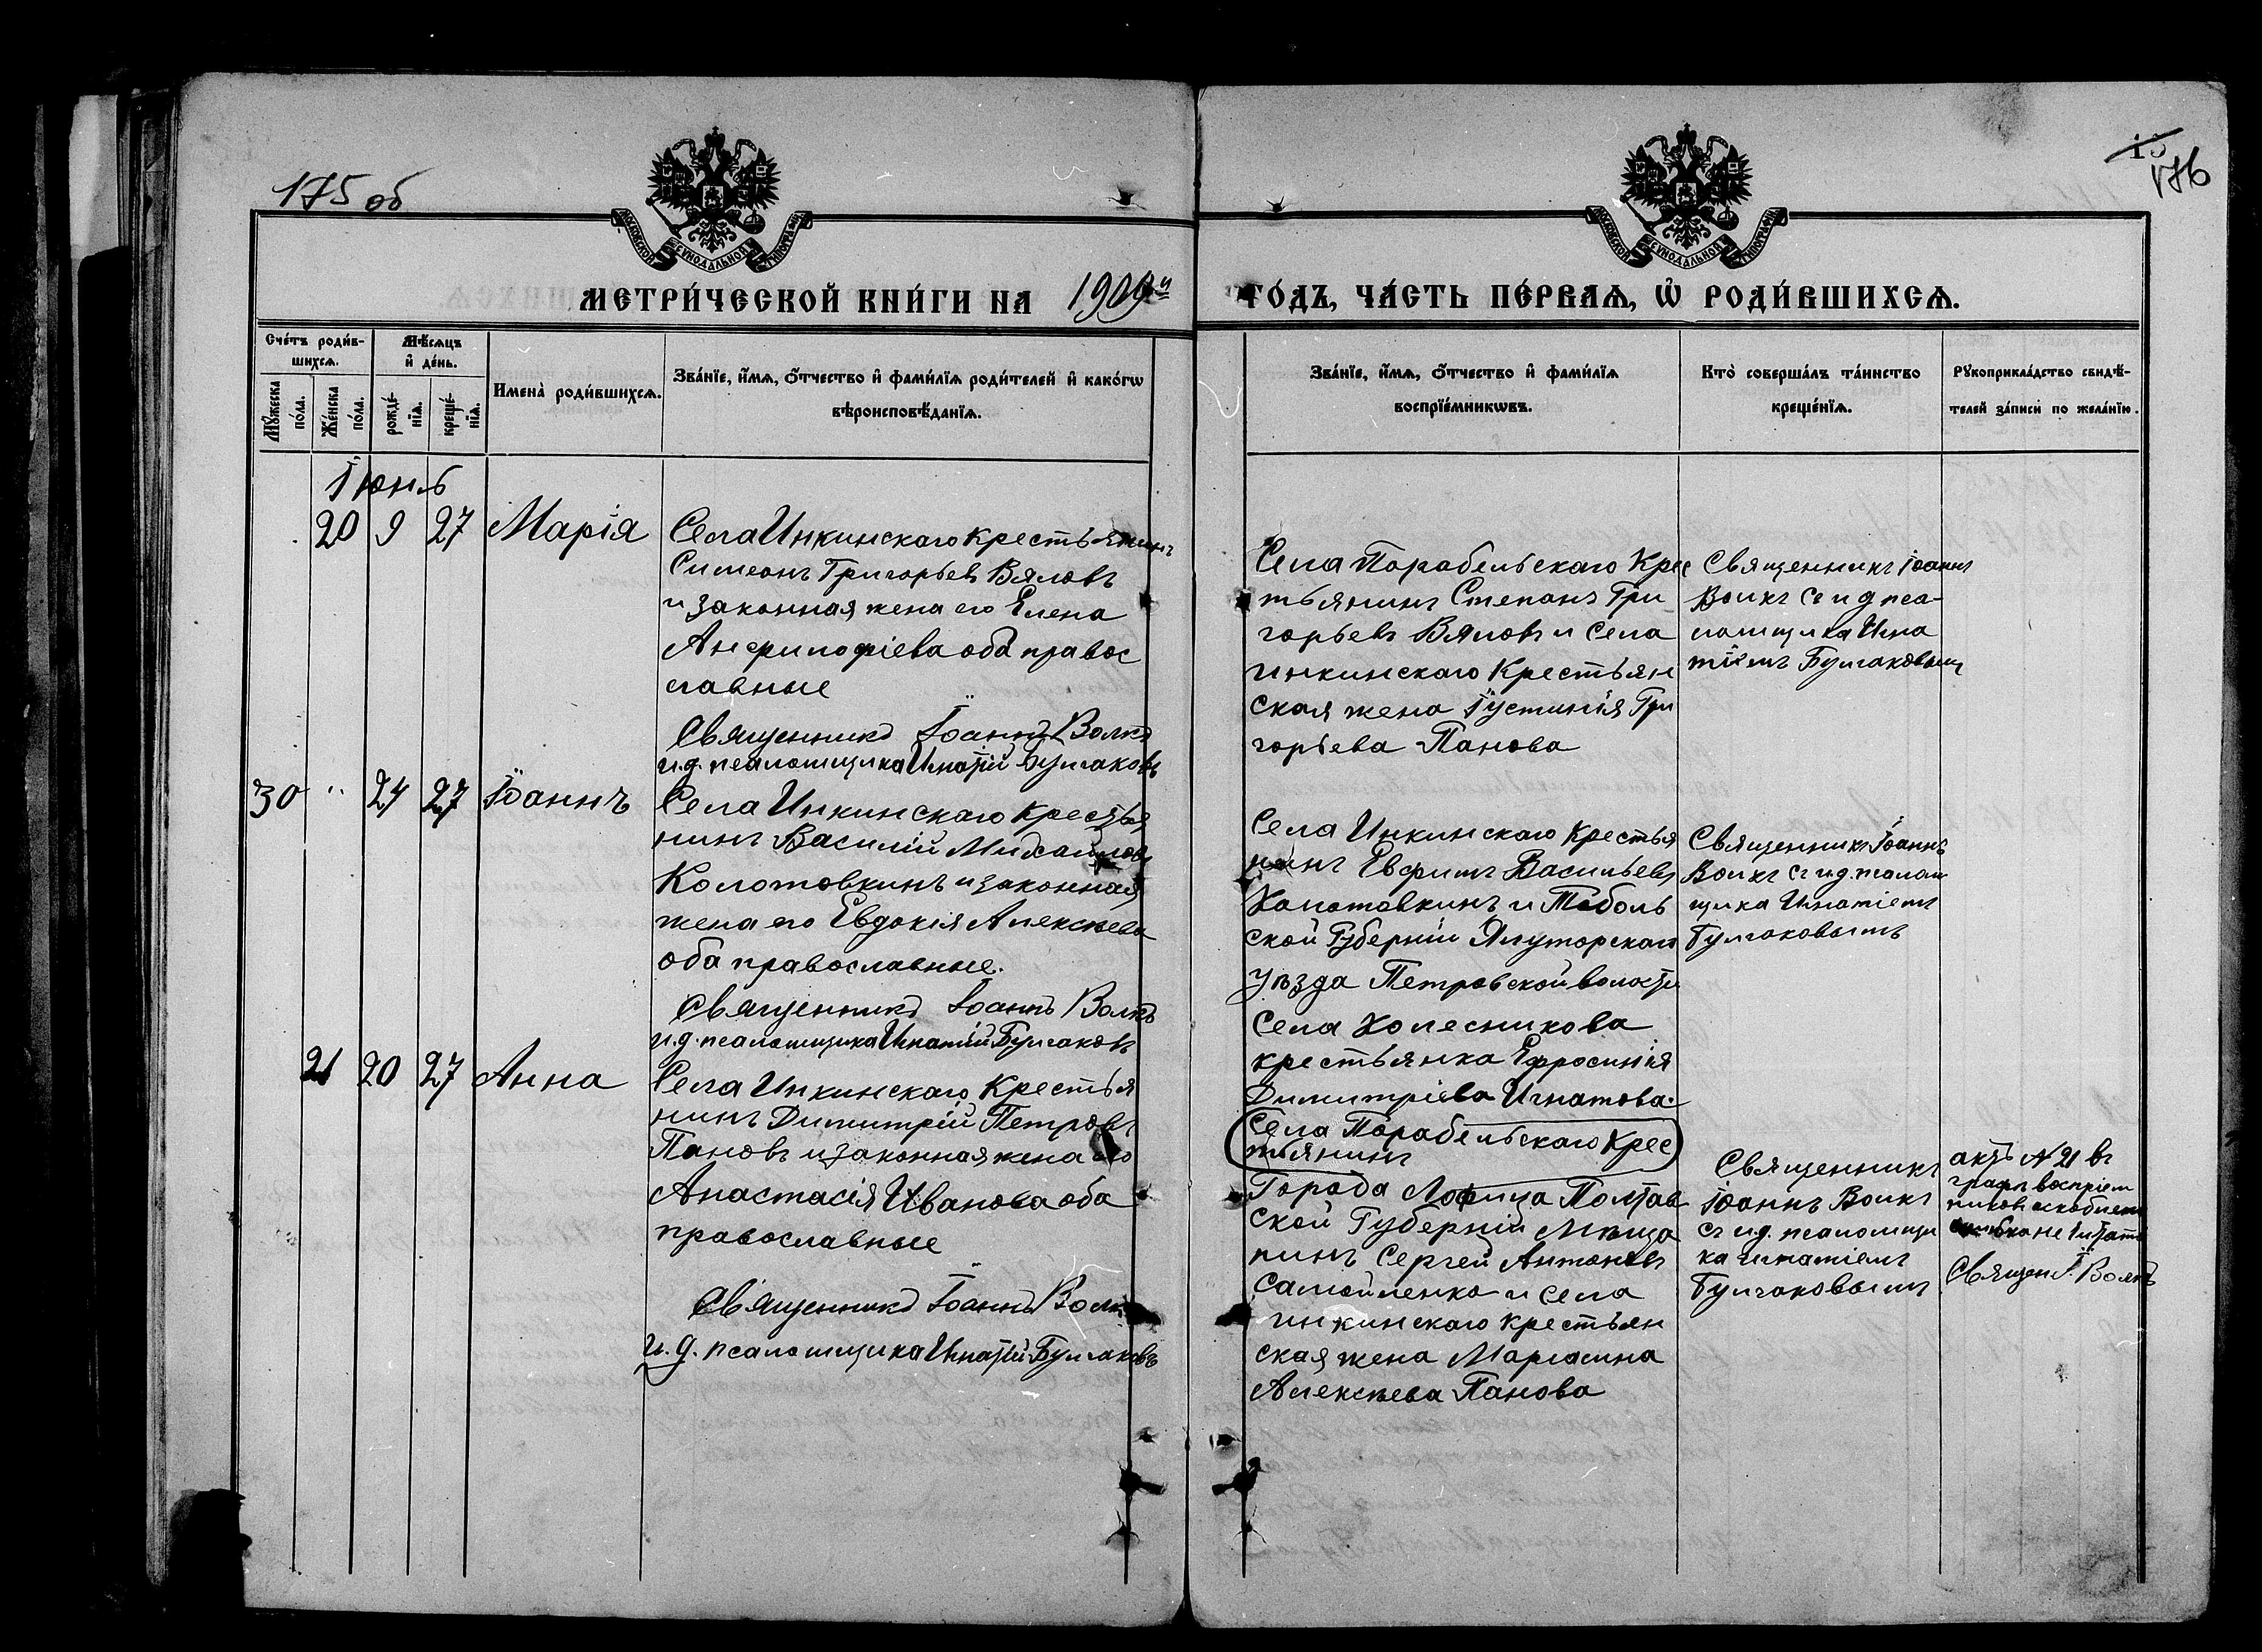 175 об
176
МОСКОВСКОЙ СѴНОДАЛЬНОЙ ТИПОГРАФІИ
МОСКОВСКОЙ СѴНОДАЛЬНОЙ ТИПОГРАФІИ
МЕТРИ́ЧЕСКОЙ КНИ́ГИ НА 1909й
ГО́ДЪ, ЧА́СТЬ ПЕ́РВАѦ, Ѽ РОДИ́ВШИХСѦ.
Сче́тъ роди́в-
шихсѧ.
Мѣ́сѧцъ
и҆ де́нь.
Мꙋ́жеска
по́ла.
Же́нска
по́ла.
рожде́-
нїѧ.
креще́-
нїѧ.
Имена̀ роди́вшихсѧ.
Зва́нїе, и҆́мѧ, ѻ҆́тчество и҆ фами́лїѧ роди́телей и҆ како́гѡ
вѣроисповѣ́данїѧ.
Зва́нїе, и҆́мѧ, ѻ҆́тчество и҆ фами́лїѧ
воспрїе́мникѡвъ.
Кто̀ соверша́лъ та́инство
креще́нїѧ.
Рꙋкоприкла́дство свидѣ́-
телей за́писи по жела́нїю.
Іюнь
20 9 27 Марія
Села Инкинскаго крестьянинъ
Симеонъ Григорьев Вяловъ
и законная жена его Елена
Анфилофіева оба правос
лавные
Священникъ Іоаннъ Волкъ
и.д. псаломщика Игнатій Булгаковъ
Села Парабельскаго Крес
тьянинъ Степанъ Гри
горьевъ Вяловъ и Села
инкинскаго Крестьян
ская жена Іустинія Гри
горьева Панова
Священникъ Іоаннъ
Волкъ съ и д пса-
ломщика Игна
тіемъ Булгаковымъ
30 " 24 27 Іоаннъ
Села Инкинскаго Крестья
нинъ Василій Михаиловъ
Колотовкинъ и законная
жена его Евдокія Алексѣева
оба православные.
Священникъ Іоаннъ Волкъ
и.д. псаломщика Игнатій Булгаковъ
Села Инкинскаго Крестья
нинъ Евфимъ Васильевъ
Колотовкинъ и Тоболь
ской Губерніи Ялуторскаго
уѣзда Петровской волости
Села Колесникова
крестьянка Ефросинія
Димитріева Игнатова.
Священникъ Іоаннъ
Волкъ съ и.д. псалом
щика Игнатіемъ
Булгаковымъ
21 20 27 Анна
Села Инкинскаго Крестья
нинъ Димитрій Петровъ
Пановъ и законная жена его
Анастасія Иванова оба
православные
Священникъ Іоаннъ Волкъ
и.д. псаломщика Игнатій Булгаковъ
(Села Парабельскаго Крес
тьянинъ)
Города Лофица Полтав
ской Губерніи Мѣща
нинъ Сергей Антоновъ
Самойленко и села
инкинскаго крестьян
ская жена
Алексѣева Панова
Священникъ
Іоаннъ Волкъ
съ и.д. псаломщи
ка игнатіемъ
Булгаковымъ
актъ N 21 въ
графѣ воспріем
никовъ
не читать
Священ. І. Волкъ